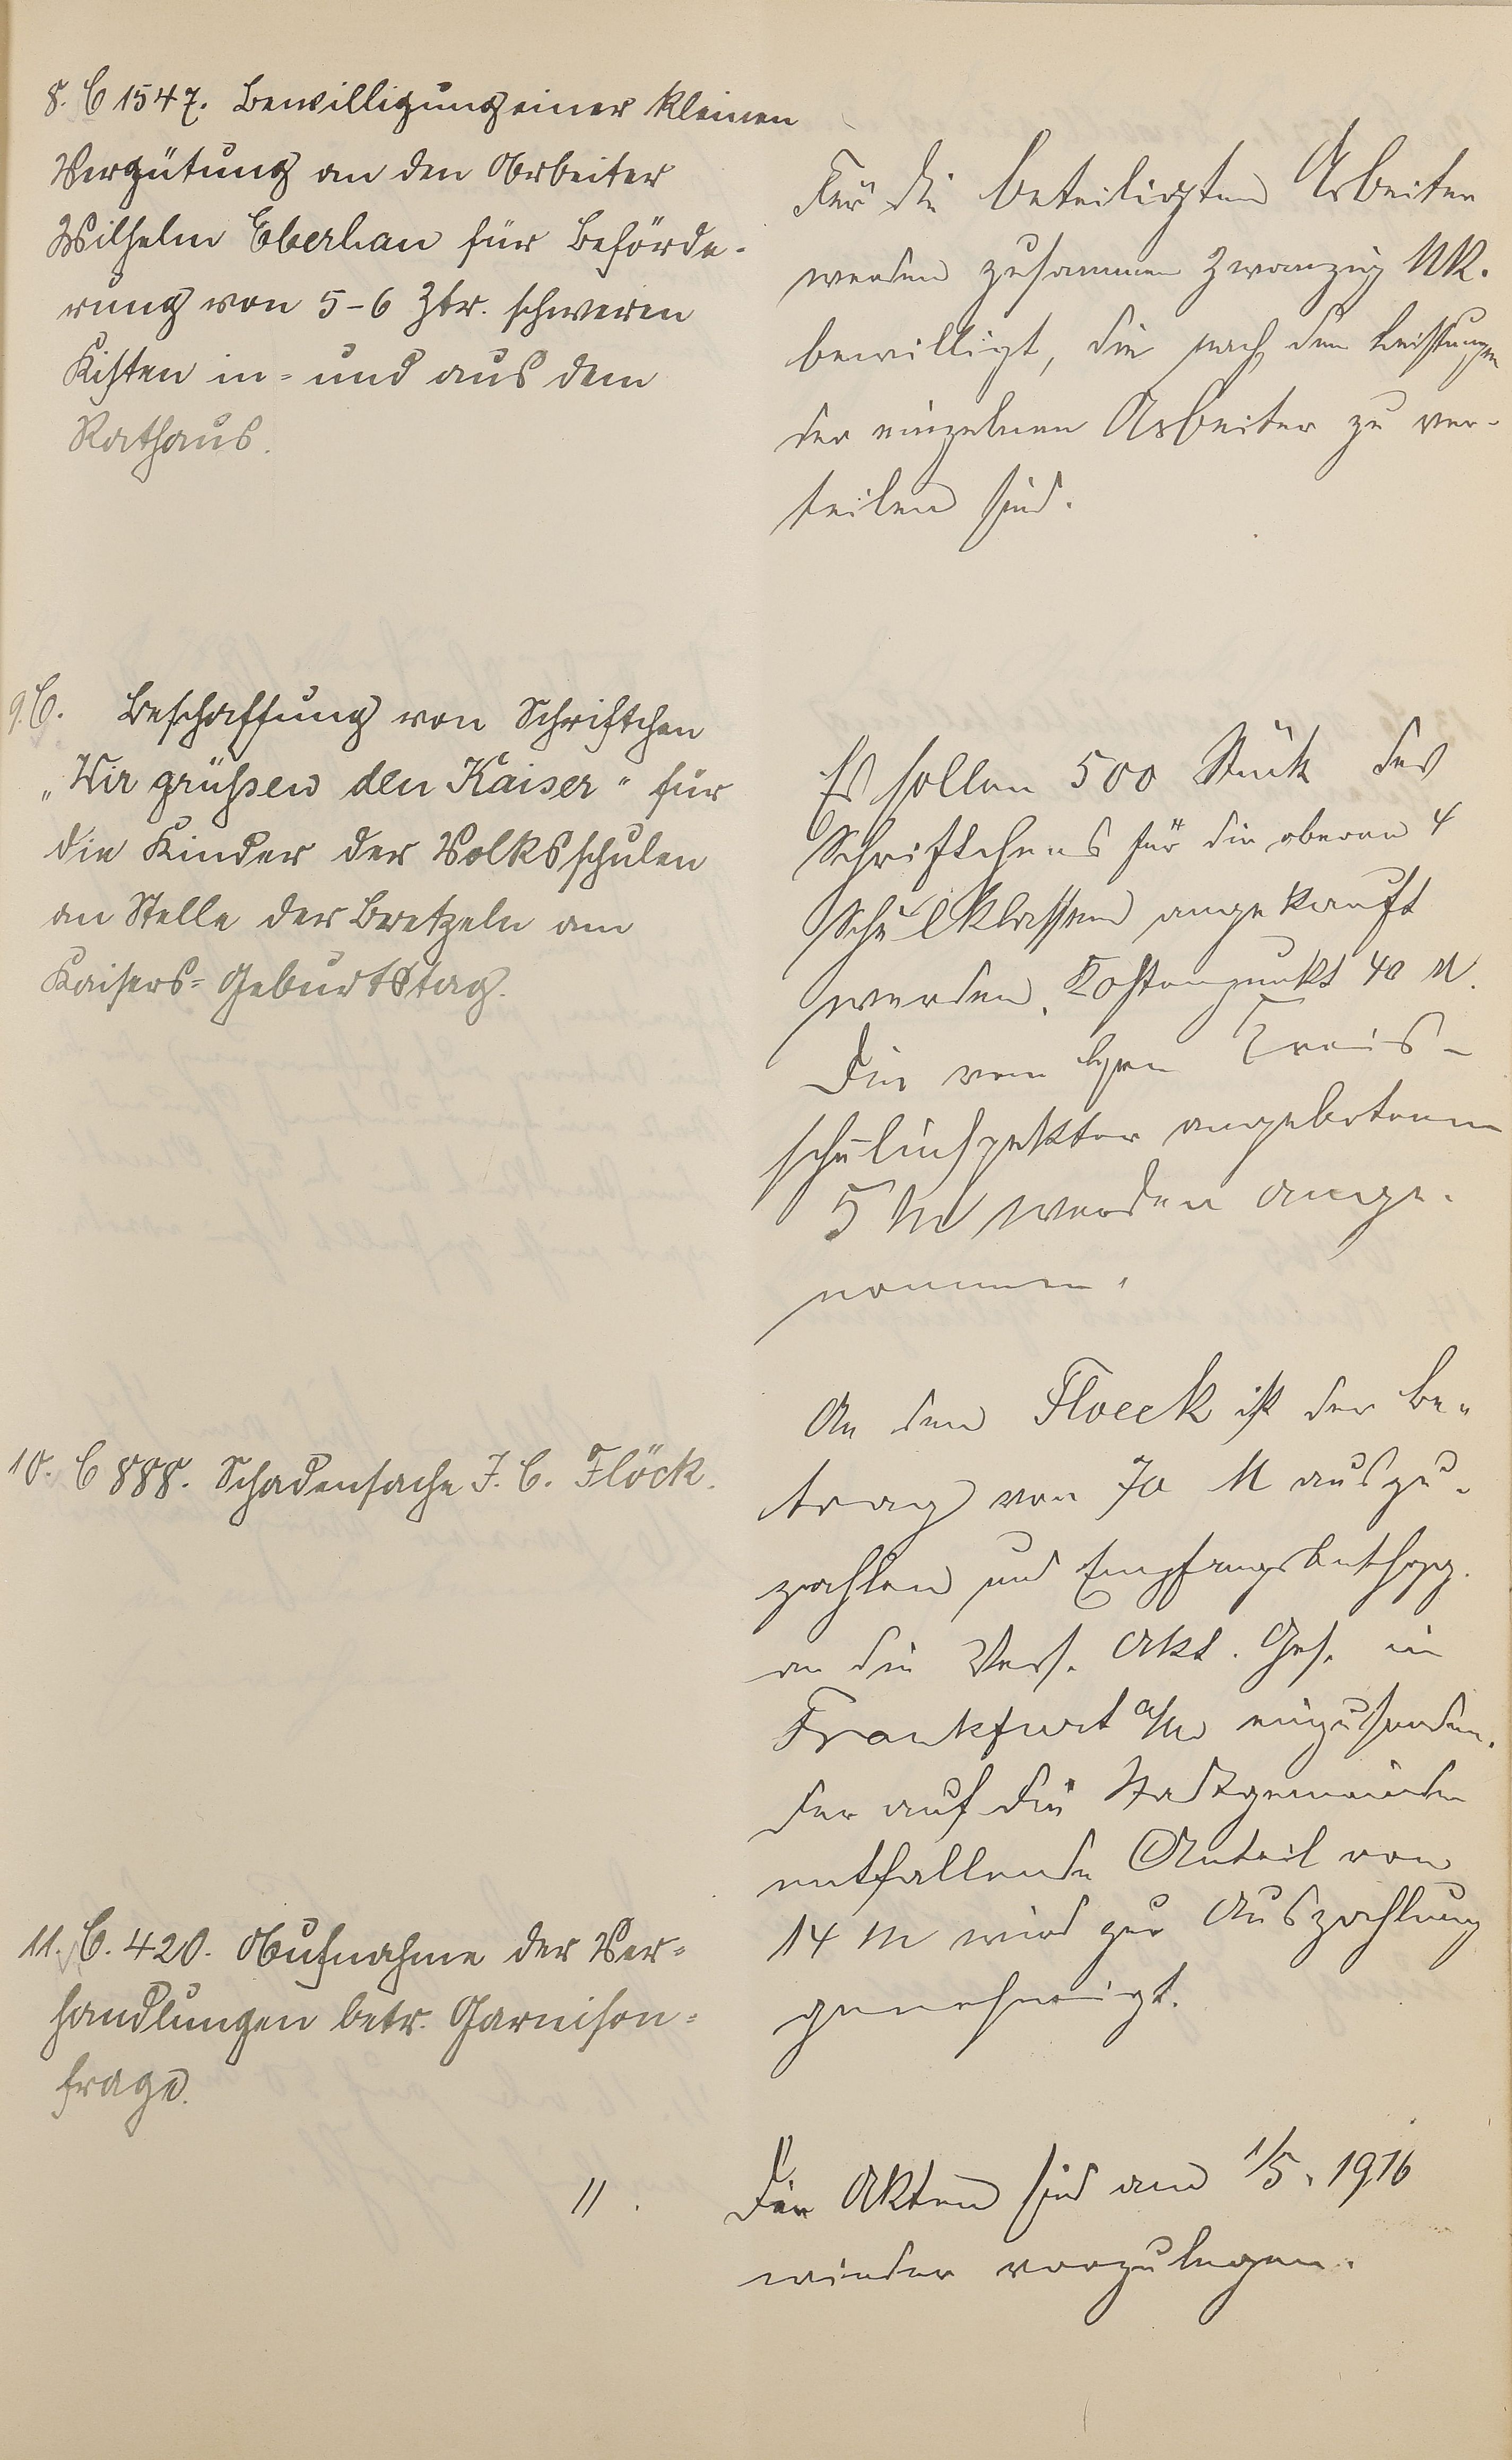 8. C 1547. Bewilligung einer kleinen
Vergütung an den Arbeiter
Wilhelm Eberhan für Beförde-
rung von 5-6 Ztr. schweren
Kisten in- und aus dem
Rathaus.
Für die beteiligten Arbeiter
werden zusammen zwanzig Mk.
bewilligt, die nach den Leistungen
der einzelnen Arbeiter zu ver-
teilen sind.
9. C. Beschaffung von Schriftchen
„Wir grüßen den Kaiser" für
die Kinder der Volksschulen
an Stelle der Bretzeln am
Kaisers-Geburtstag.
Es sollen 500 Stück des
Schriftchens für die oberen 4
Schulklassen angekauft
werden. Kostenpunkt 40 M.
Die vom Hrn Kreis-
schulinspektor angebotenen
5 M werden ange-
nommen.
10. C 888. Schadensache J. C. Flöck.
An den Floeck ist der Be-
trag von 70 M auszu-
zahlen und
an die Vers. Akt. Ges. in
Frankfurt a/M einzusenden.
Der auf die Stadtgemeinde
entfallende Anteil von
14 M wird zur Auszahlung
genehmigt.
11. C. 420. Aufnahme der Ver-
handlungen betr. Garnison-
frage.
11. Die Akten sind am 1/5. 1916
wieder vorzulegen.